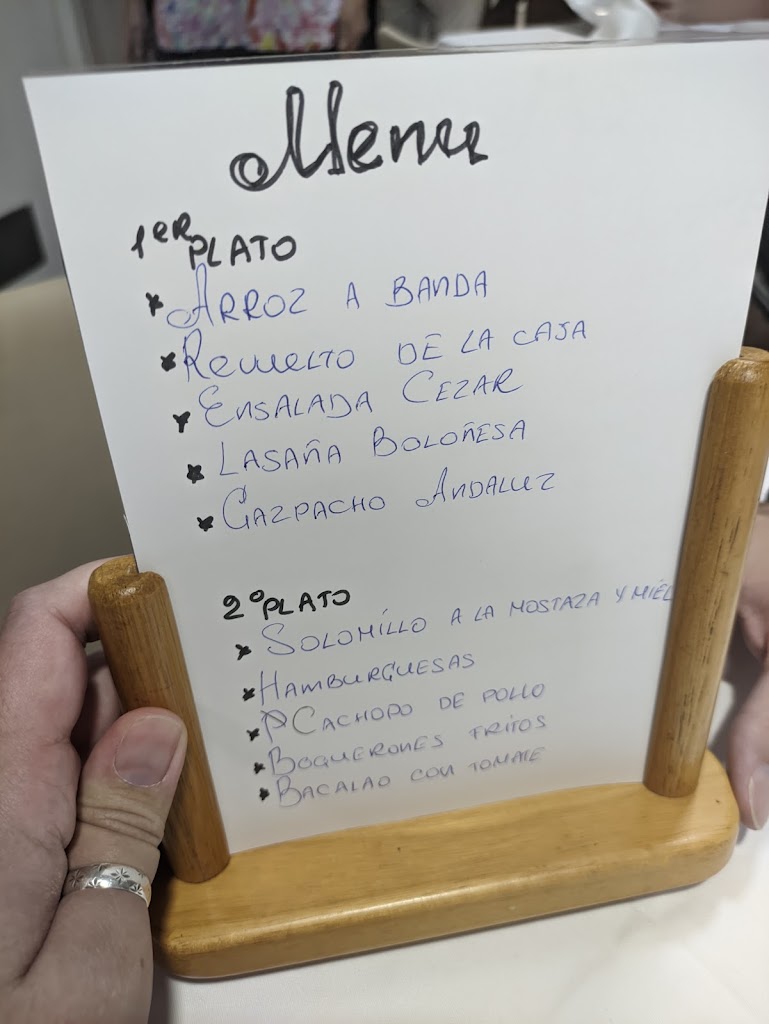 Menu
1ER PLATO
* ARROZ A BANDA
* REVUELTO DE LA CAJA
* ENSALADA CEZAR
* LASAÑA BOLOÑESA
* GAZPACHO ANDALUZ
2º PLATO
* SOLOMILLO A LA MOSTAZA Y MIEL
* HAMBURGUESAS
* CACHOPO DE POLLO
* BOQUERONES FRITOS
* BACALAO CON TOMATE